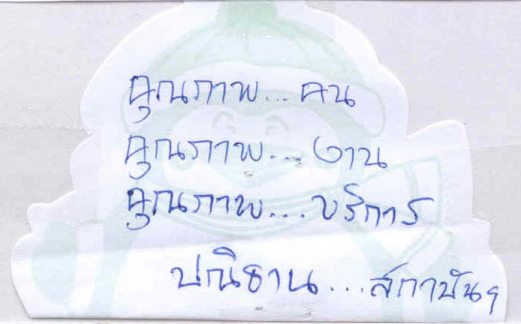 คุณภาพ... คน
คุณภาพ... งาน
คุณภาพ... บริการ
ปณิธาน... สถาบันฯ